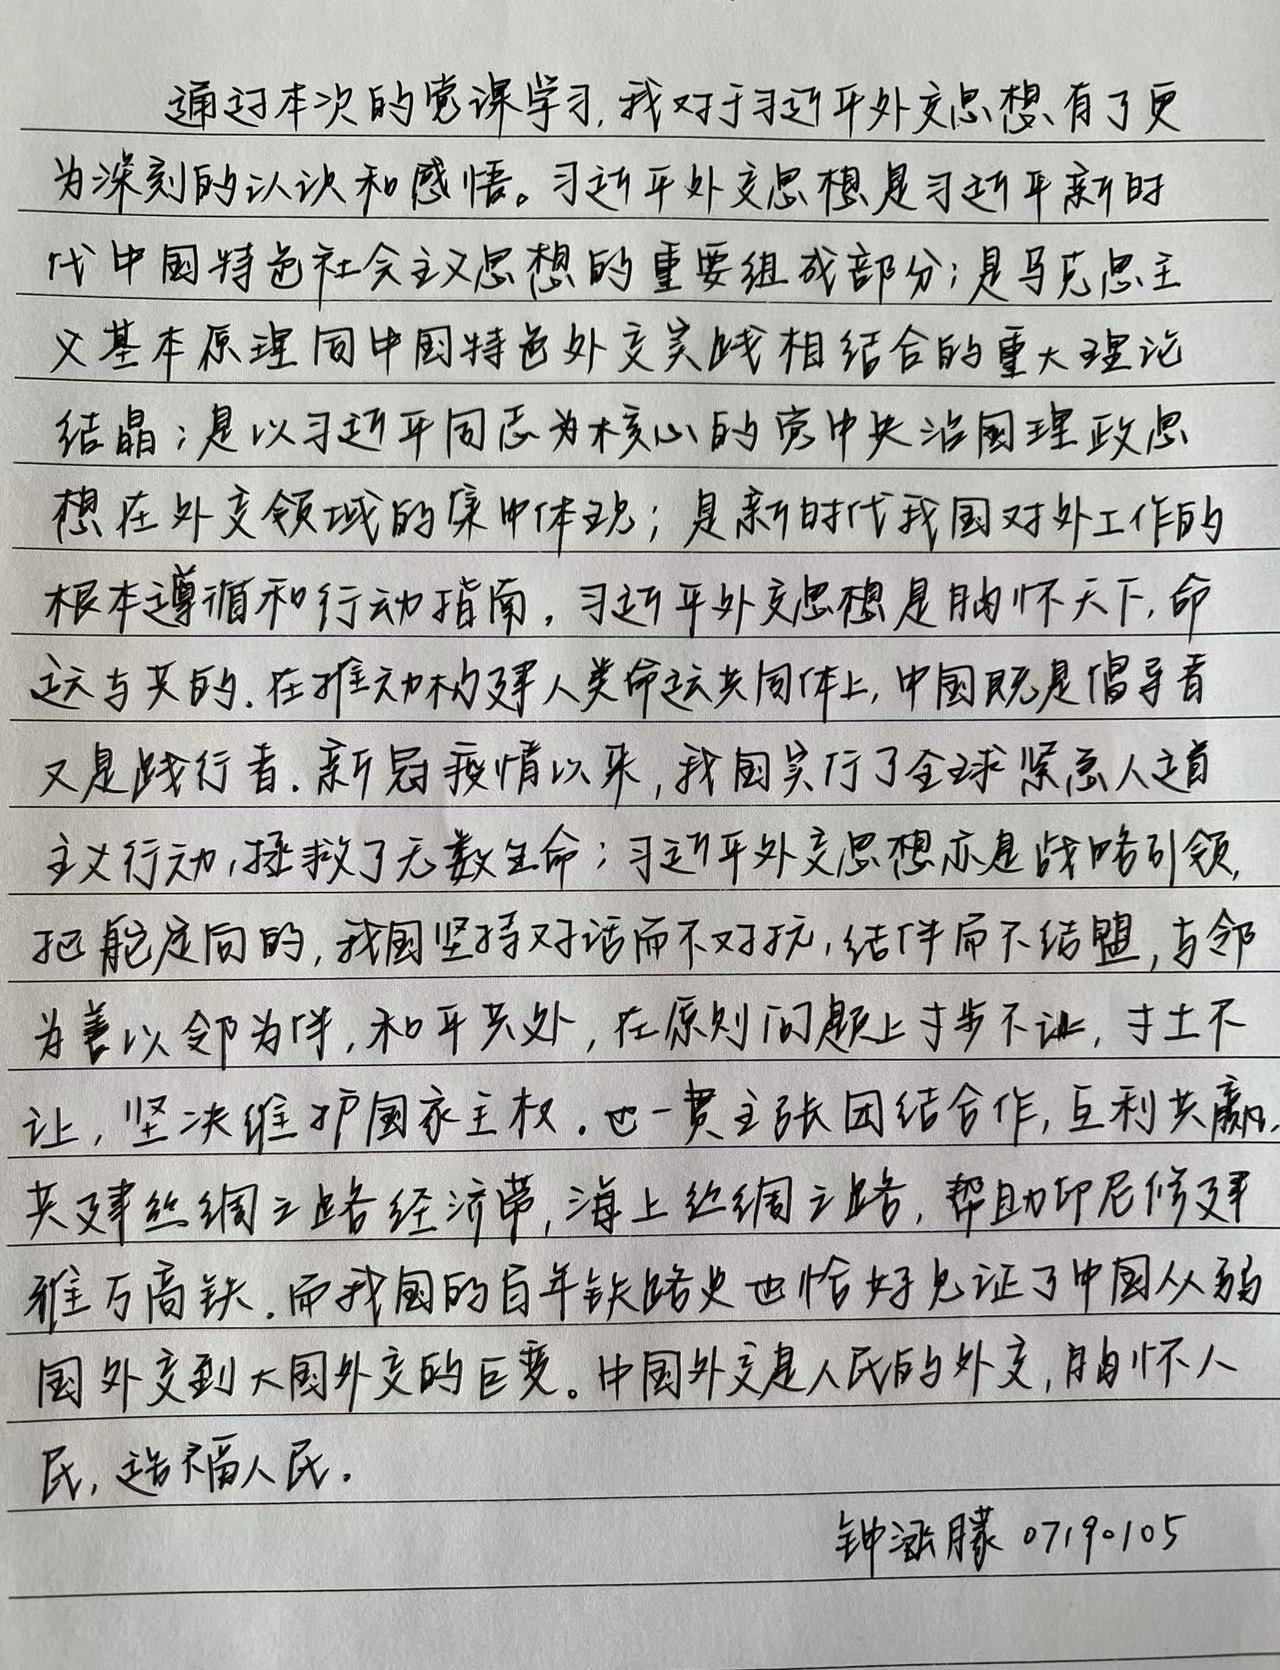 通过本次的党课学习,我对于习近平外交思想有了更
为深刻的认识和感悟。习近平外交思想是习近平新时
代中国特色社会主义思想的重要组成部分;是马克思主
义基本原理同中国特色外交实践相结合的重大理论
结晶;是以习近平同志为核心的党中央治国理政思
想在外交领域的集中体现;是新时代我国对外工作的
根本遵循和行动指南.习近平外交思想是胸怀天下,命
运与共的.在推动构建人类命运共同体上,中国既是倡导者
又是践行者.新冠疫情以来,我国实行了全球紧急人道
主义行动,拯救了无数生命;习近平外交思想亦是战略引领,
把舵定向的,我国坚持对话而不对抗,结伴而不结盟,与邻
为善以邻为伴,和平共处,在原则问题上寸步不让,寸土不
让,坚决维护国家主权.也一贯主张团结合作,互利共赢.
共建丝绸之路经济带,海上丝绸之路,帮助印尼修建
雅万高铁.而我国的百年铁路史也恰好见证了中国从弱
国外交到大国外交的巨变。中国外交是人民的外交,胸怀人
民,造福人民.
钟 朦 07190105